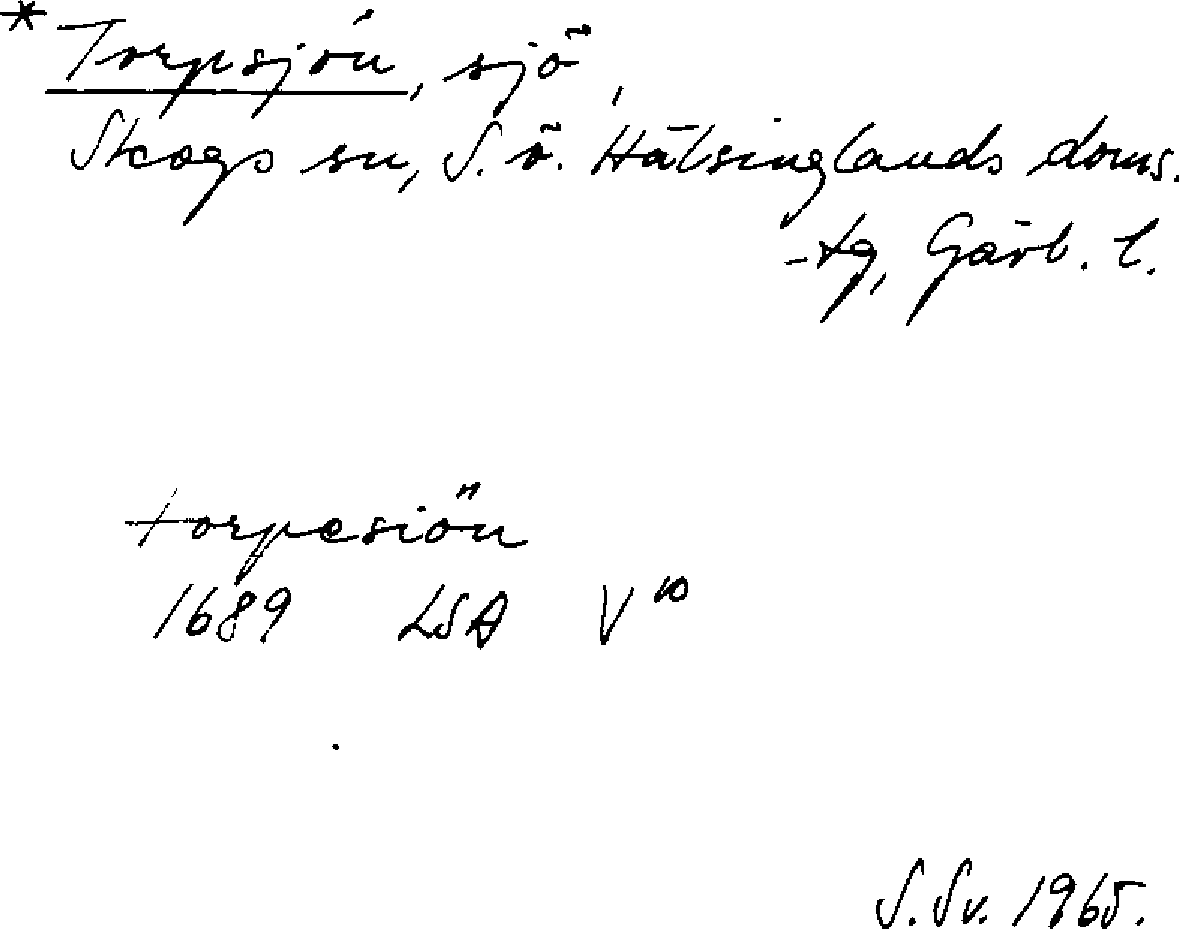 * Torpsjön, sjö,
Skogs sn, S. ö. Hälsinglands doms.
-tg, Gävl. l.
torpesiön
1689 LSA V¹⁰
S. Sv. 1965.